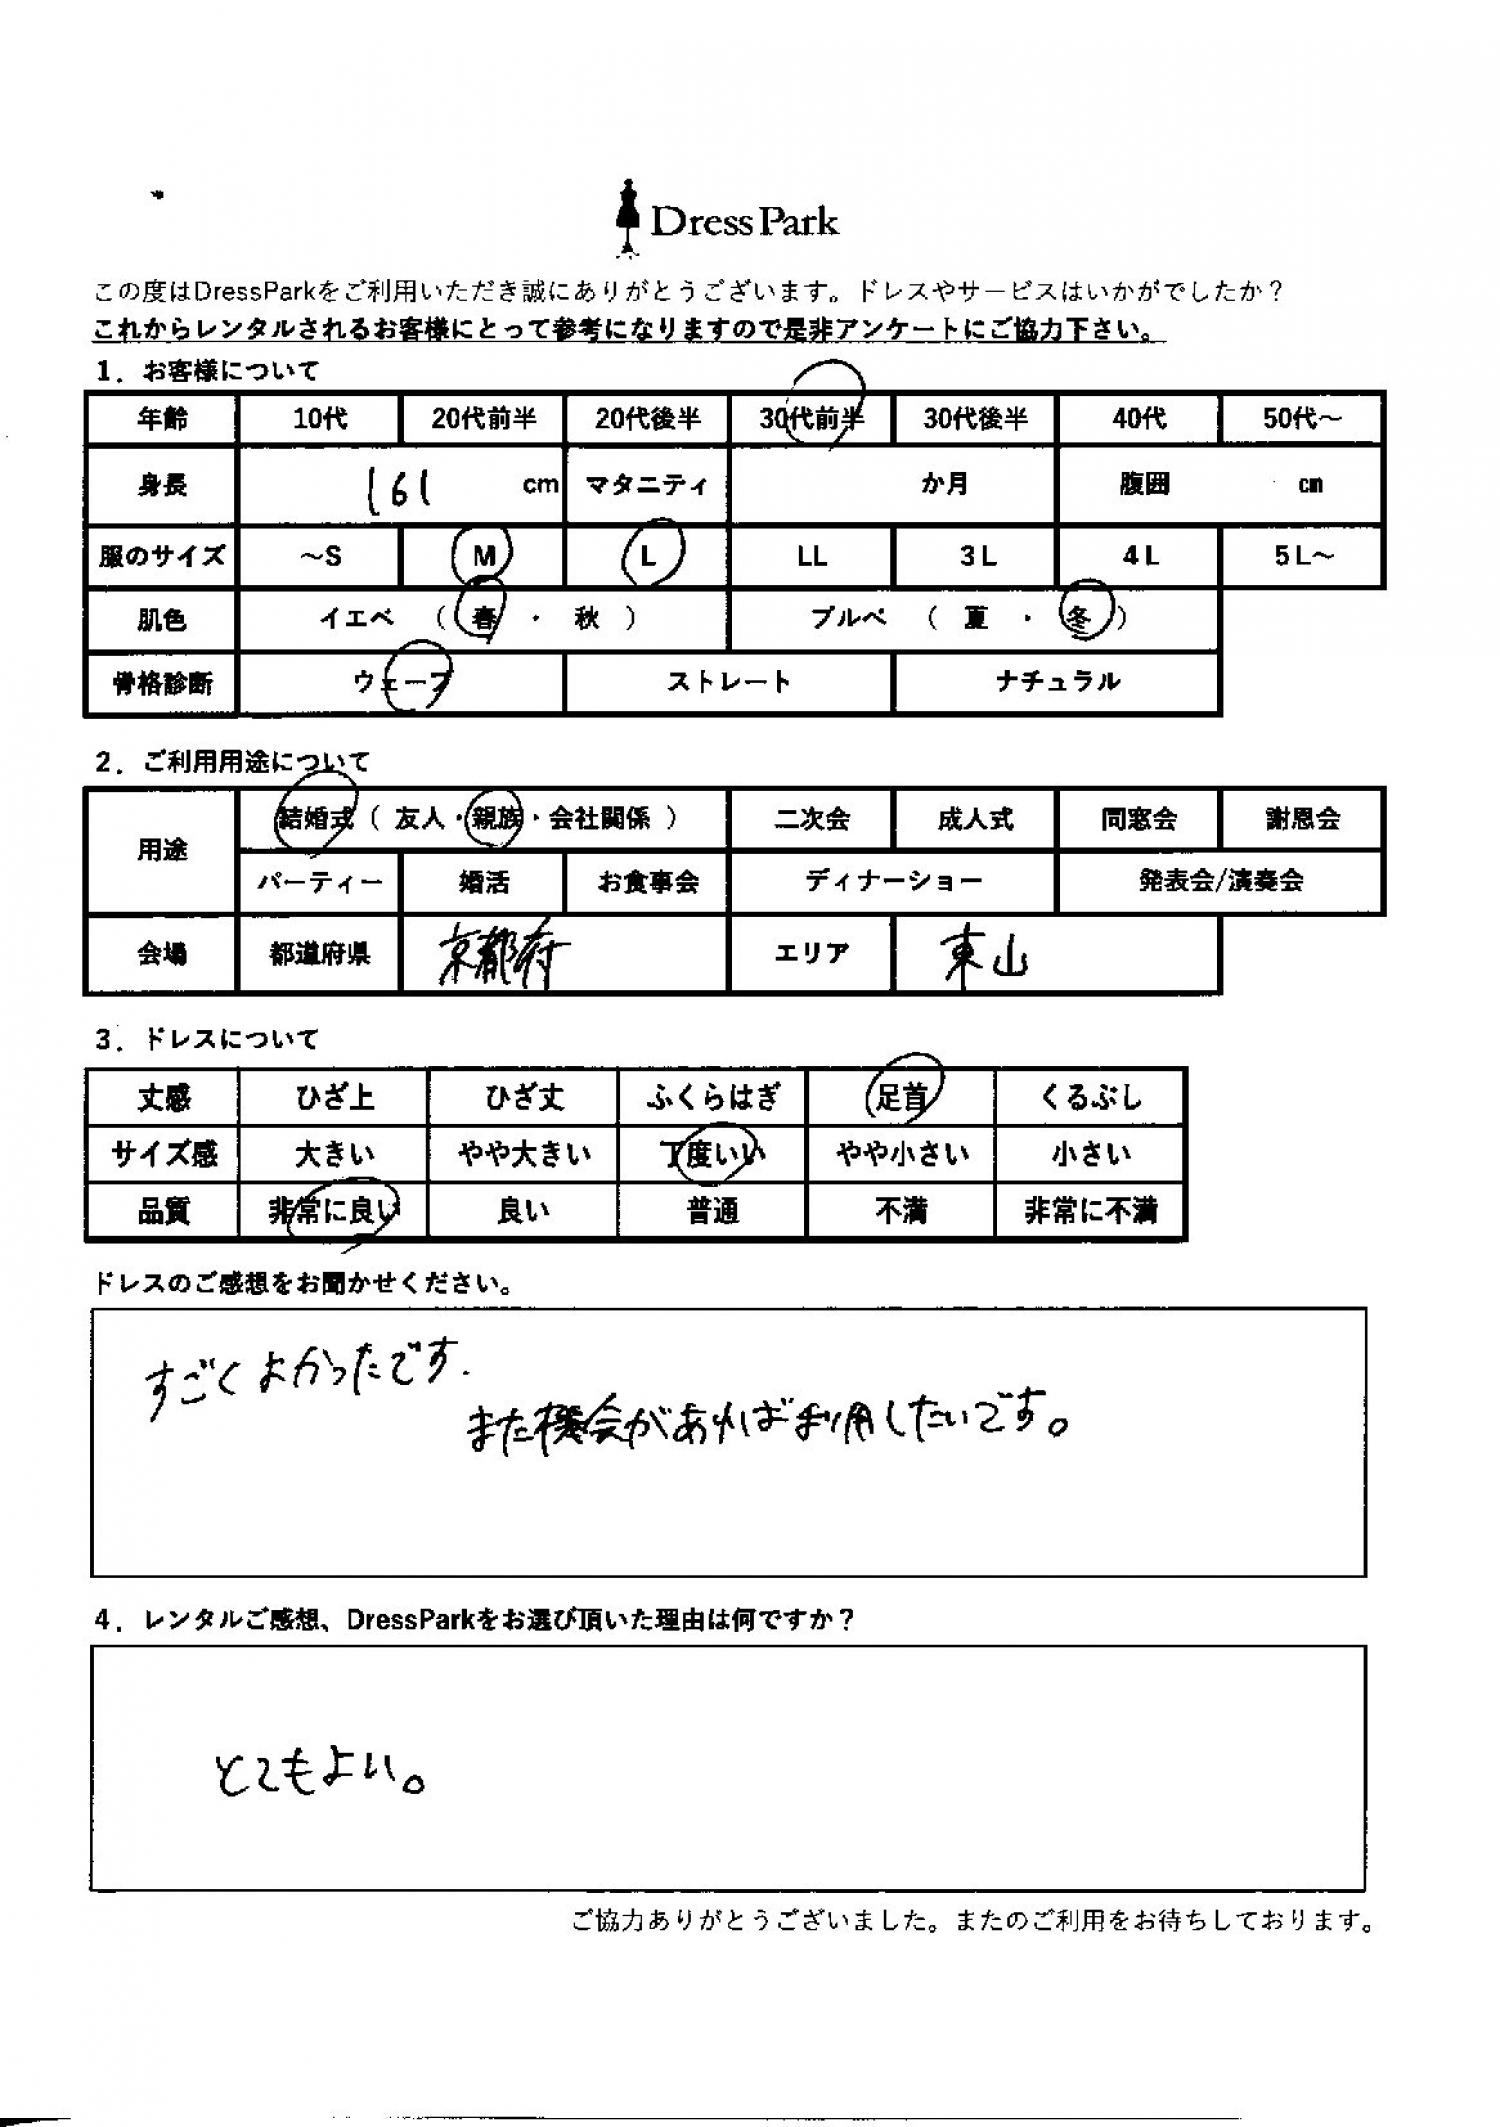 DressPark
この度はDressParkをご利用いただき誠にありがとうございます。ドレスやサービスはいかがでしたか？
これからレンタルされるお客様にとって参考になりますので是非アンケートにご協力下さい。
1．お客様について
年齢 10代 20代前半 20代後半 30代前半 30代後半 40代 50代～
身長 161 cm マタニティ か月 腹囲 cm
服のサイズ ～S M L LL 3L 4L 5L～
肌色 イエベ （ 春 ・ 秋 ） ブルベ （ 夏 ・ 冬 ）
骨格診断 ウェーブ ストレート ナチュラル
2．ご利用用途について
用途 結婚式（ 友人・親族・会社関係 ） 二次会 成人式 同窓会 謝恩会
パーティー 婚活 お食事会 ディナーショー 発表会/演奏会
会場 都道府県 京都府 エリア 東山
3．ドレスについて
丈感 ひざ上 ひざ丈 ふくらはぎ 足首 くるぶし
サイズ感 大きい やや大きい 丁度いい やや小さい 小さい
品質 非常に良い 良い 普通 不満 非常に不満
ドレスのご感想をお聞かせください。
すごくよかったです.
また機会があれば利用したいです。
4．レンタルご感想、DressParkをお選び頂いた理由は何ですか？
とてもよい。
ご協力ありがとうございました。またのご利用をお待ちしております。